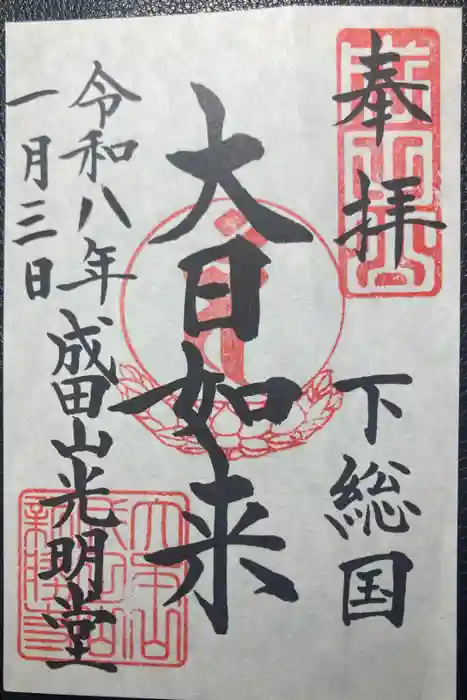 奉拝
下総国
大日如来
令和八年
一月三日
成田山光明堂
成田山